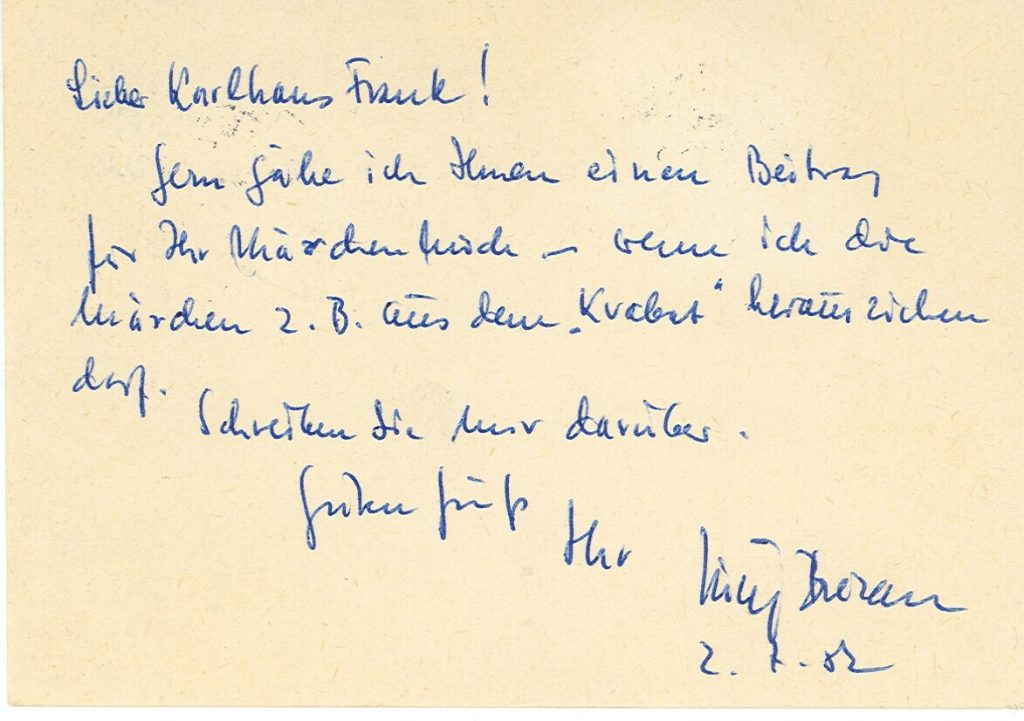 Lieber Karlhans Frank!
Gern gäbe ich Ihnen einen Beitrag
für Ihr Märchenbuch – wenn ich die
Märchen z. B. aus dem „Krabat“ herausziehen
darf.
Schreiben Sie mir darüber.
Guten Gruß
Ihr Jurij Brězan
2. 7. 82